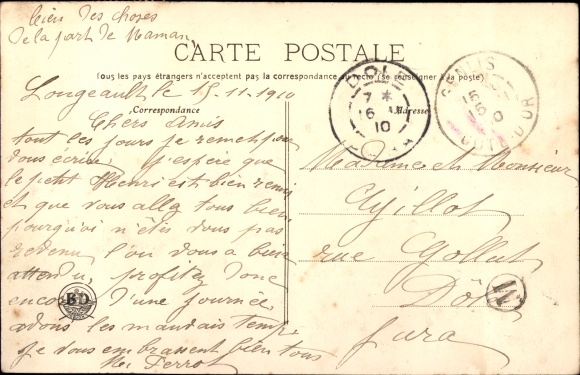 bien des choses
de la part de Maman
CARTE POSTALE
Tous les pays étrangers n'acceptent pas la correspondance au recto (se renseigner à la poste)
Correspondance
Adresse
Longeault le 15.11.1910
Chers Amis
tout les jours je remet pour
vous écrire j'espère que
le petit Henri est bien remis
et que vous allez tous bien
pourquoi n'êtes vous pas
revenu l'on vous a bien
attendu, profitez donc
encore d'une journée
avons les mauvais temps
je vous embrassent bien tous
Perrot
Madame et Monsieur
rue
Dôle
Jura
DOLE
7 *
16
10
GENLIS
16
10
COTE-D'OR
BD